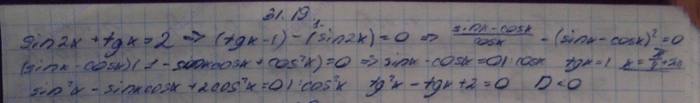 31.19
sin2x + tgx = 2 => (tgx - 1) - (sin2x) = 0 => sinx - cosx / cosx - (sinx - cosx)² = 0
(sinx - cosx)(1 - sinxcosx + cos²x) = 0 => sinx - cosx = 0 |: cosx tgx = 1
sin²x - sinxcosx + 2cos²x = 0 |: cos²x tg²x - tgx + 2 = 0 D < 0